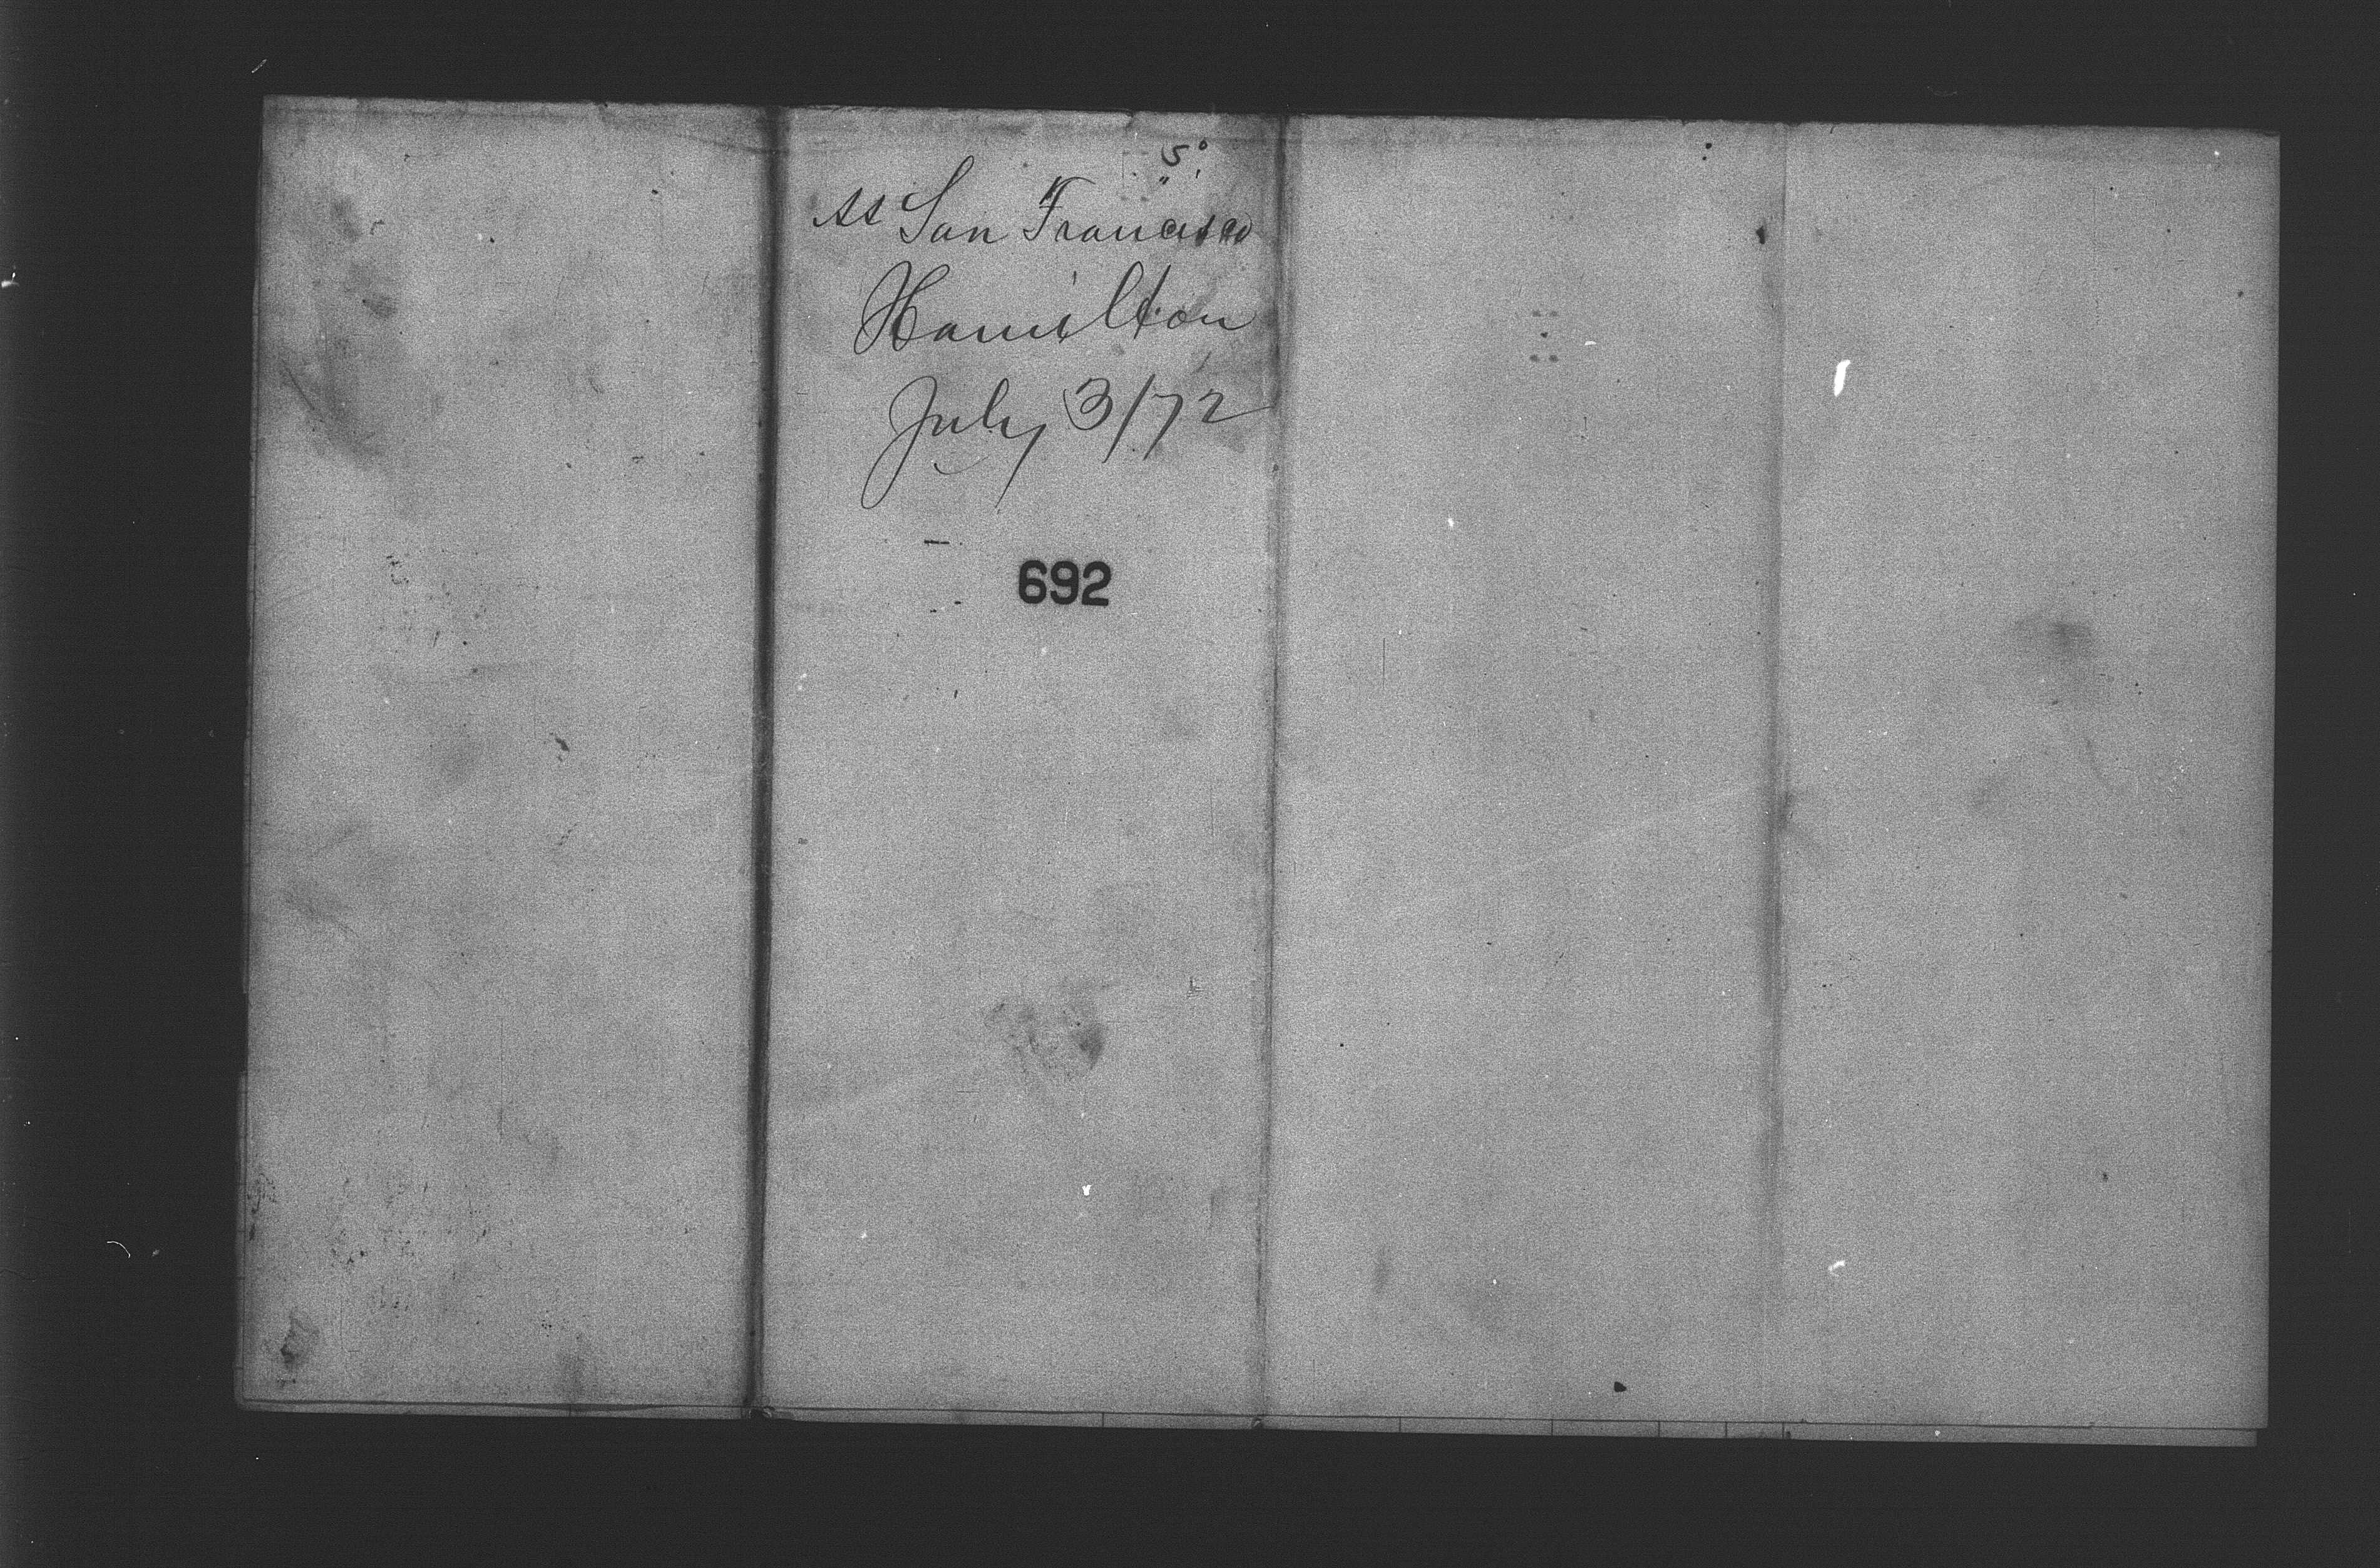 5
SS San Francisco
Hamilton
July 3/72
692